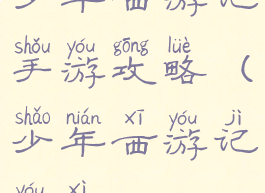 少年西游记
shǒu yóu gōng lüè
手游攻略（
shǎo nián xī yóu jì
少年西游记
yóu xì